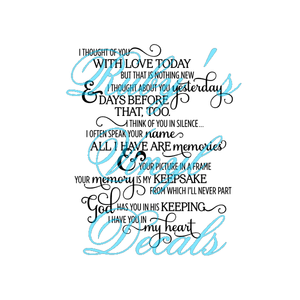 I THOUGHT OF YOU
WITH LOVE TODAY
BUT THAT IS NOTHING NEW
I THOUGHT ABOUT YOU yesterday
& DAYS BEFORE
THAT, TOO.
I THINK OF YOU IN SILENCE ...
I OFTEN SPEAK YOUR name
ALL I HAVE ARE memories
& YOUR PICTURE IN A FRAME
YOUR memory IS MY KEEPSAKE
FROM WHICH I'LL NEVER PART
God HAS YOU IN HIS KEEPING
I HAVE YOU IN
my heart
Ruby's
Vinyl
Decals